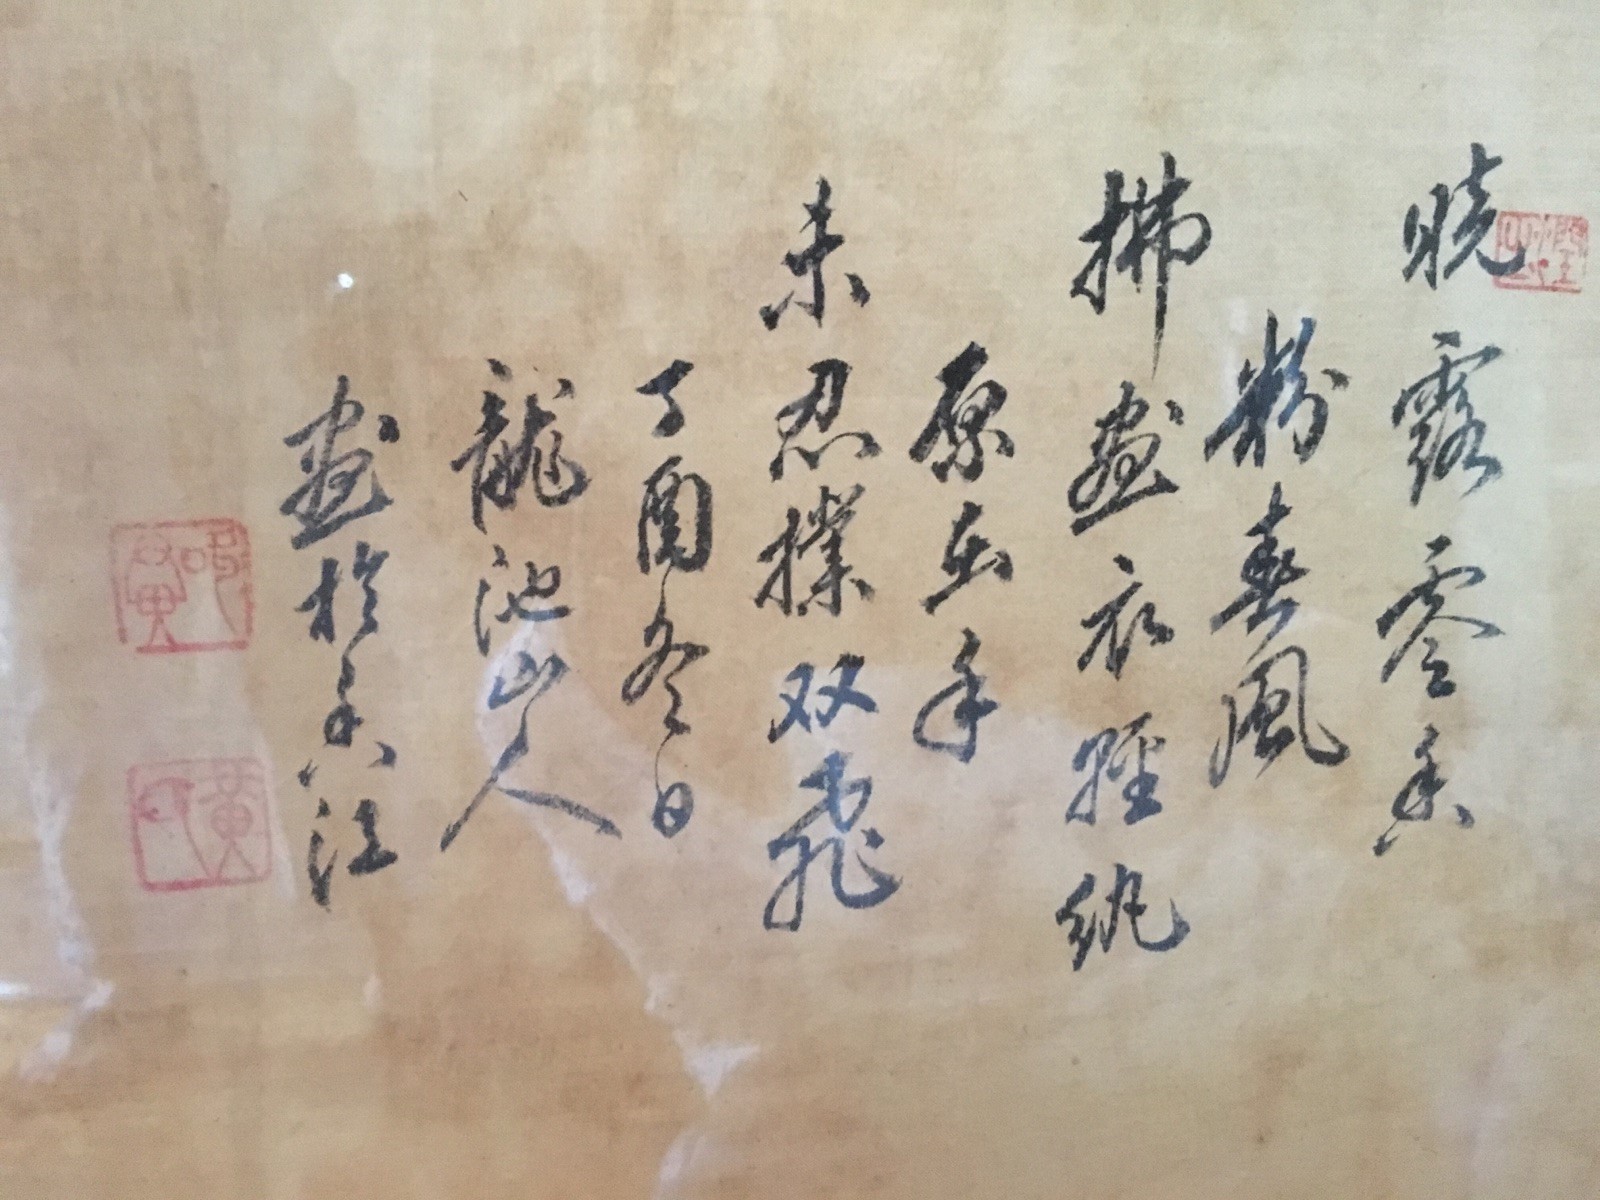 曉露零香
粉春風
拂畫衣輕紈
原在手
未忍撲双飛
丁酉冬日
龍池山人
畫於香江
黃